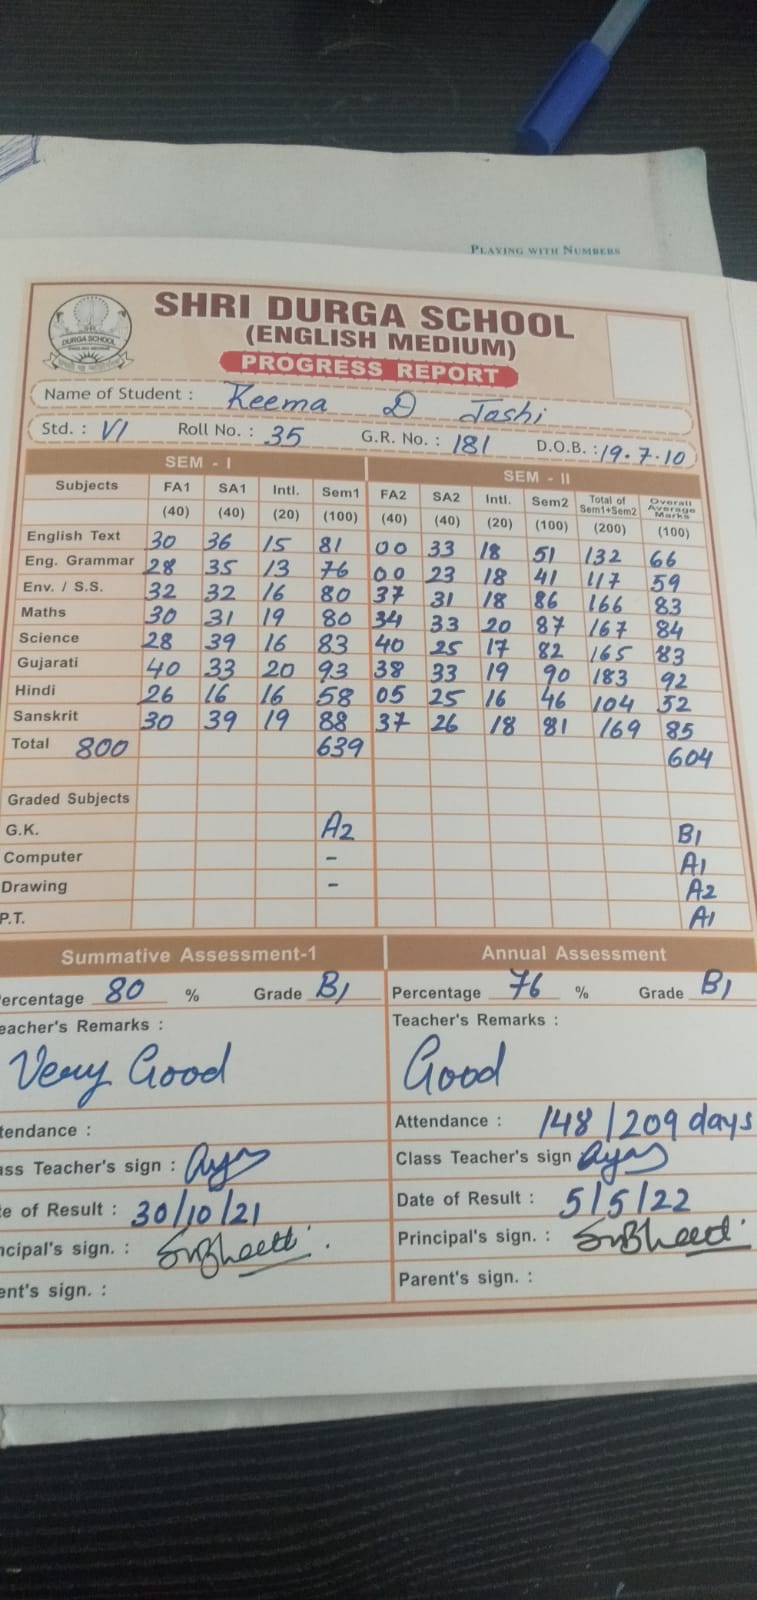 PLAYING WITH NUMBERS
SHRI DURGA SCHOOL
(ENGLISH MEDIUM)
PROGRESS REPORT
DURGA SCHOOL
Name of Student : Reema D Joshi
Std. : VI Roll No. : 35 G.R. No. : 181 D.O.B. : 19.7.10
SEM - I SEM - II
Subjects FA1 SA1 Intl. Sem1 FA2 SA2 Intl. Sem2 Total of Sem1+Sem2 Overall Average Marks
(40) (40) (20) (100) (40) (40) (20) (100) (200) (100)
English Text 30 36 15 81 00 33 18 51 132 66
Eng. Grammar 28 35 13 76 00 23 18 41 117 59
Env. / S.S. 32 32 16 80 37 31 18 86 166 83
Maths 30 31 19 80 34 33 20 87 167 84
Science 28 39 16 83 40 25 17 82 165 83
Gujarati 40 33 20 93 38 33 19 90 183 92
Hindi 26 16 16 58 05 25 16 46 104 52
Sanskrit 30 39 19 88 37 26 18 81 169 85
Total 800 639 604
Graded Subjects
G.K. A2 B1
Computer - A1
Drawing - A2
P.T. A1
Summative Assessment-1 Annual Assessment
ercentage 80 % Grade B1 Percentage 76 % Grade B1
eacher's Remarks : Teacher's Remarks :
Very Good Good
tendance : Attendance : 148/209 days
ass Teacher's sign : Class Teacher's sign
e of Result : 30/10/21 Date of Result : 5/5/22
ncipal's sign. : Principal's sign. :
ent's sign. : Parent's sign. :